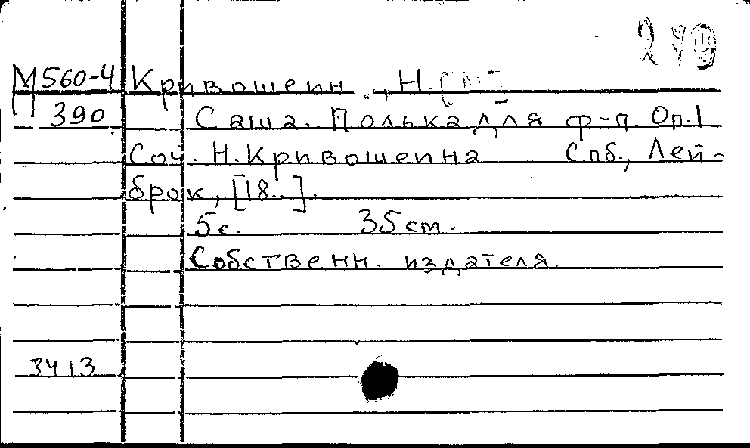 279
М560-4 Кривошеин, Н.
390 Саша. Полька для ф-п Оп.1
Соч. Н. Кривошеина Спб., Лей-
брок, [18..].
5с. 35 cm.
Собственн. издателя
3413